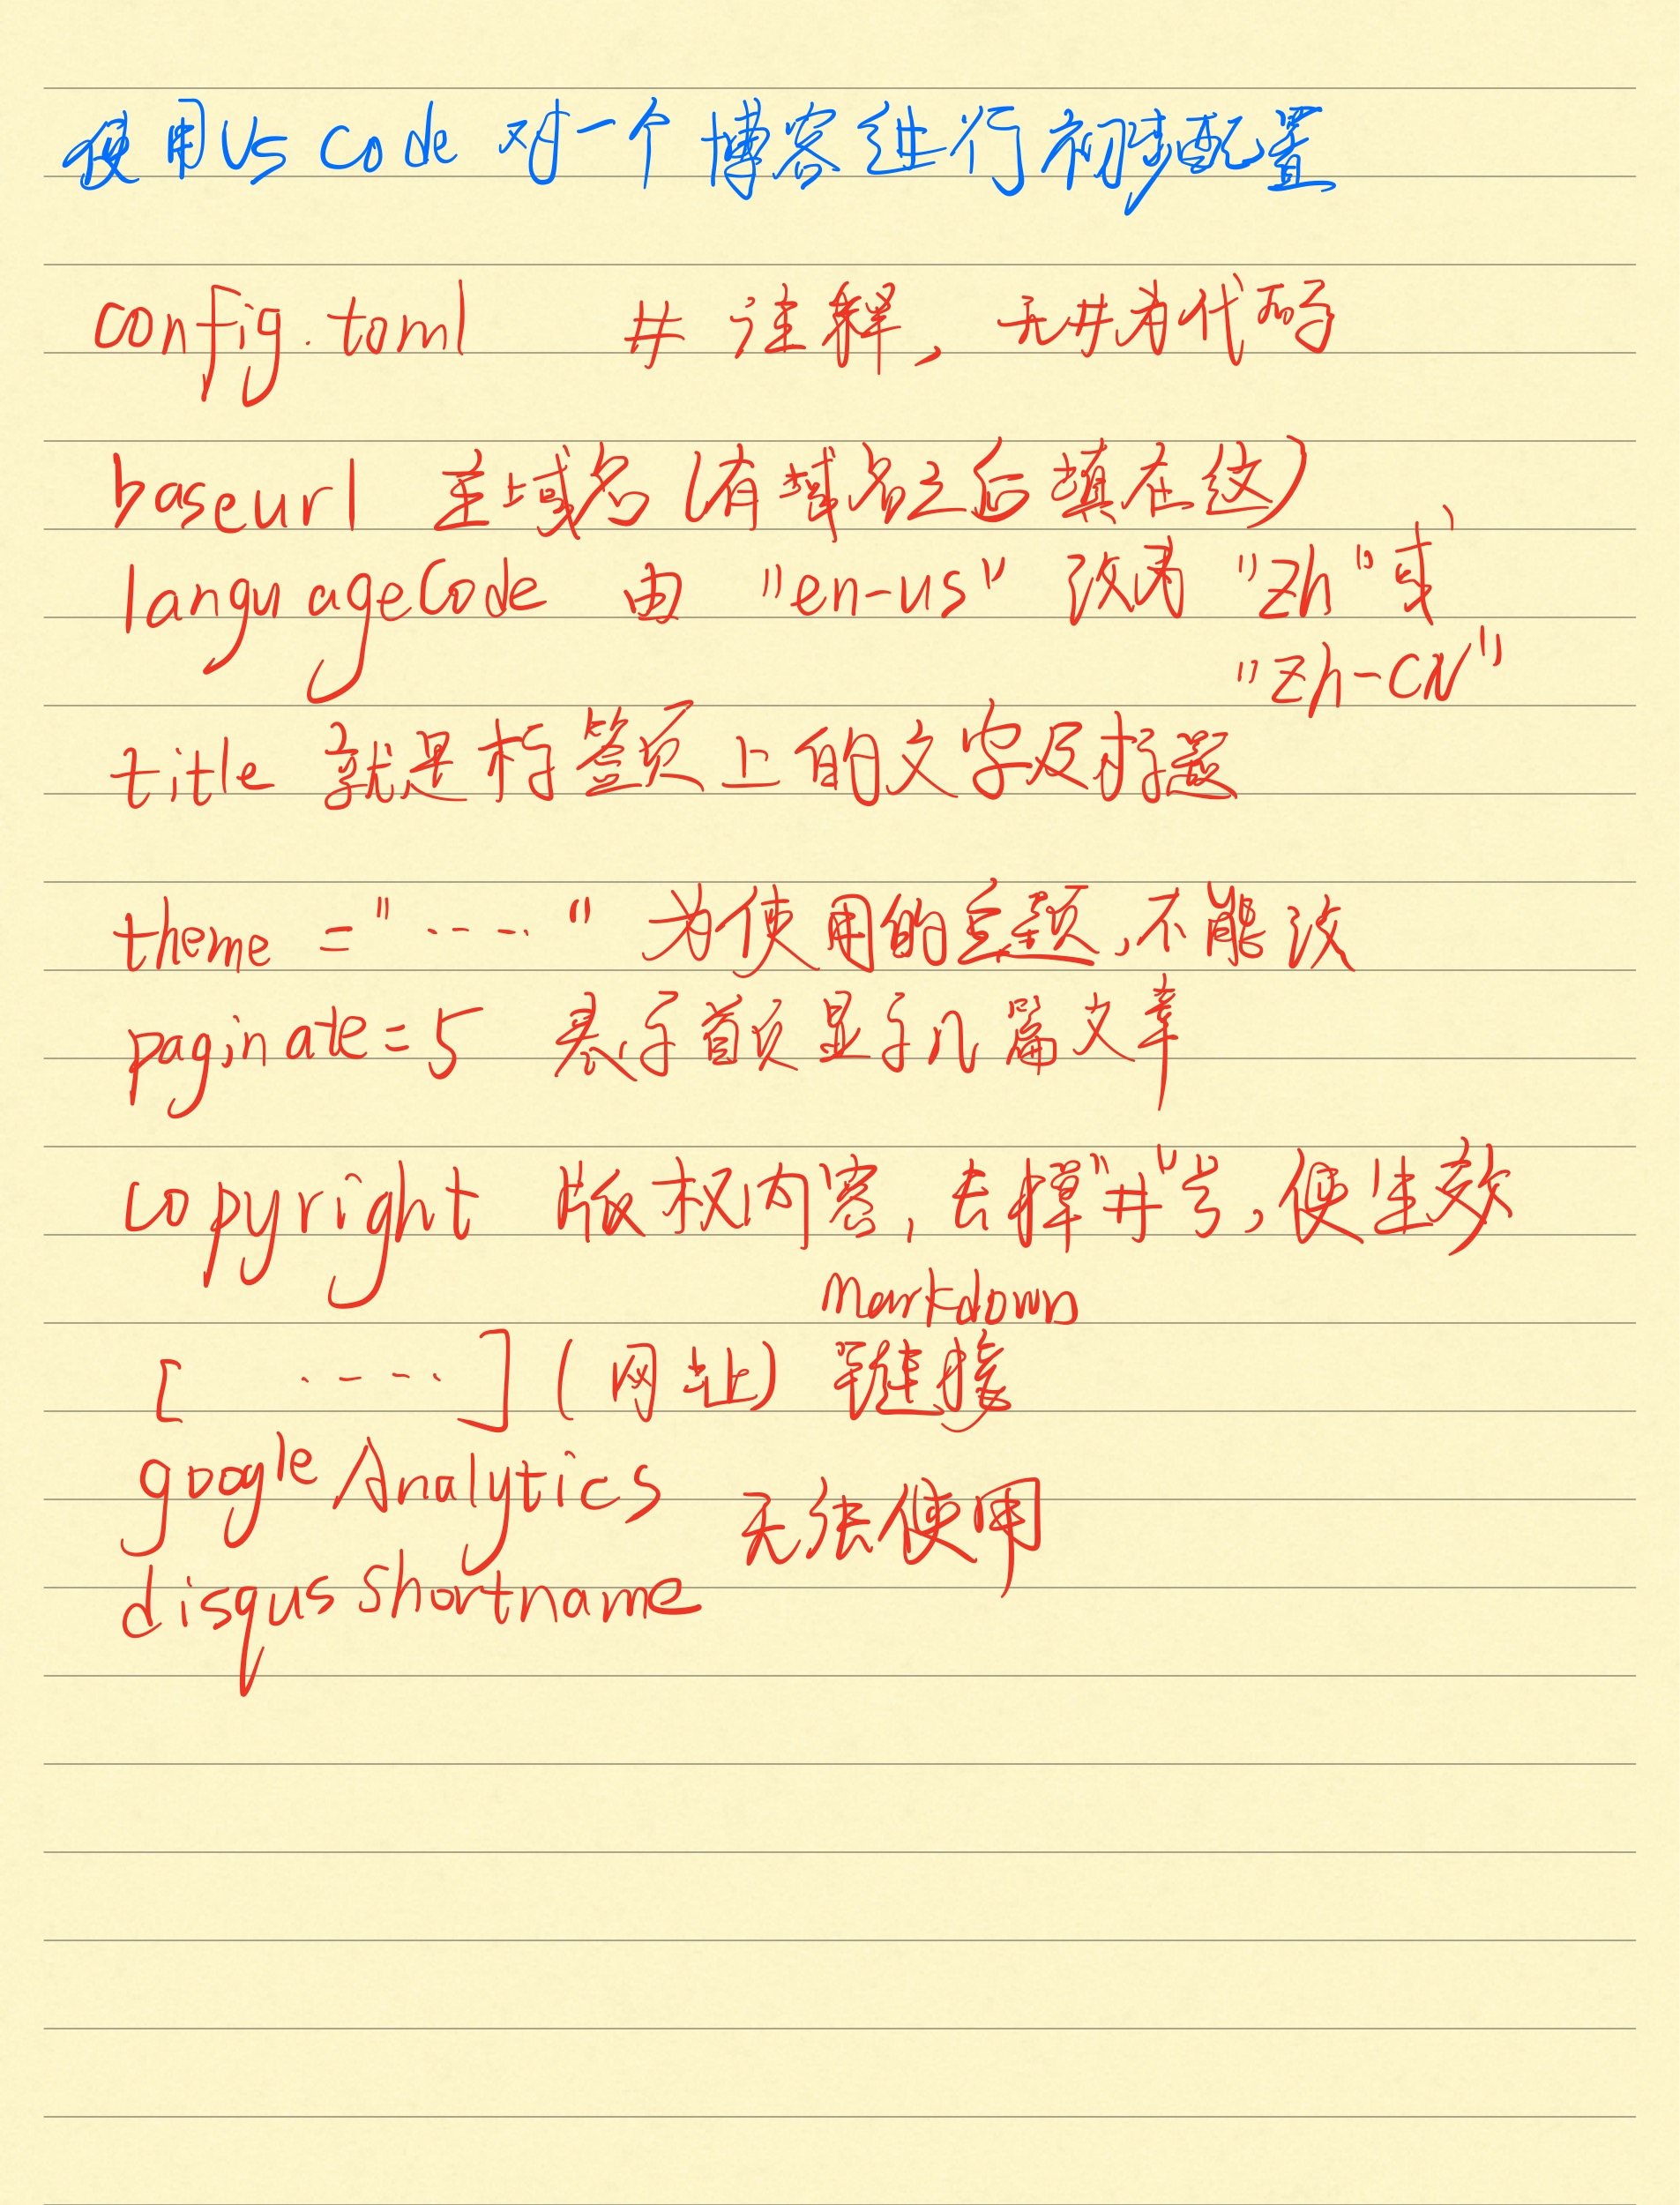 使用VS Code 对一个博客进行初步配置
config.toml # 注释, 无#为代码
baseurl 主域名(有域名之后填在这)
languageCode 由 "en-us" 改为 "zh" 或
"zh-CN"
title 就是标签页上的文字及标题
theme = "……" 为使用的主题,不能改
paginate=5 表示首页显示几篇文章
copyright 版权内容, 去掉"#"号,使生效
Markdown
[ …… ] (网址) 链接
googleAnalytics
无法使用
disqusShortname